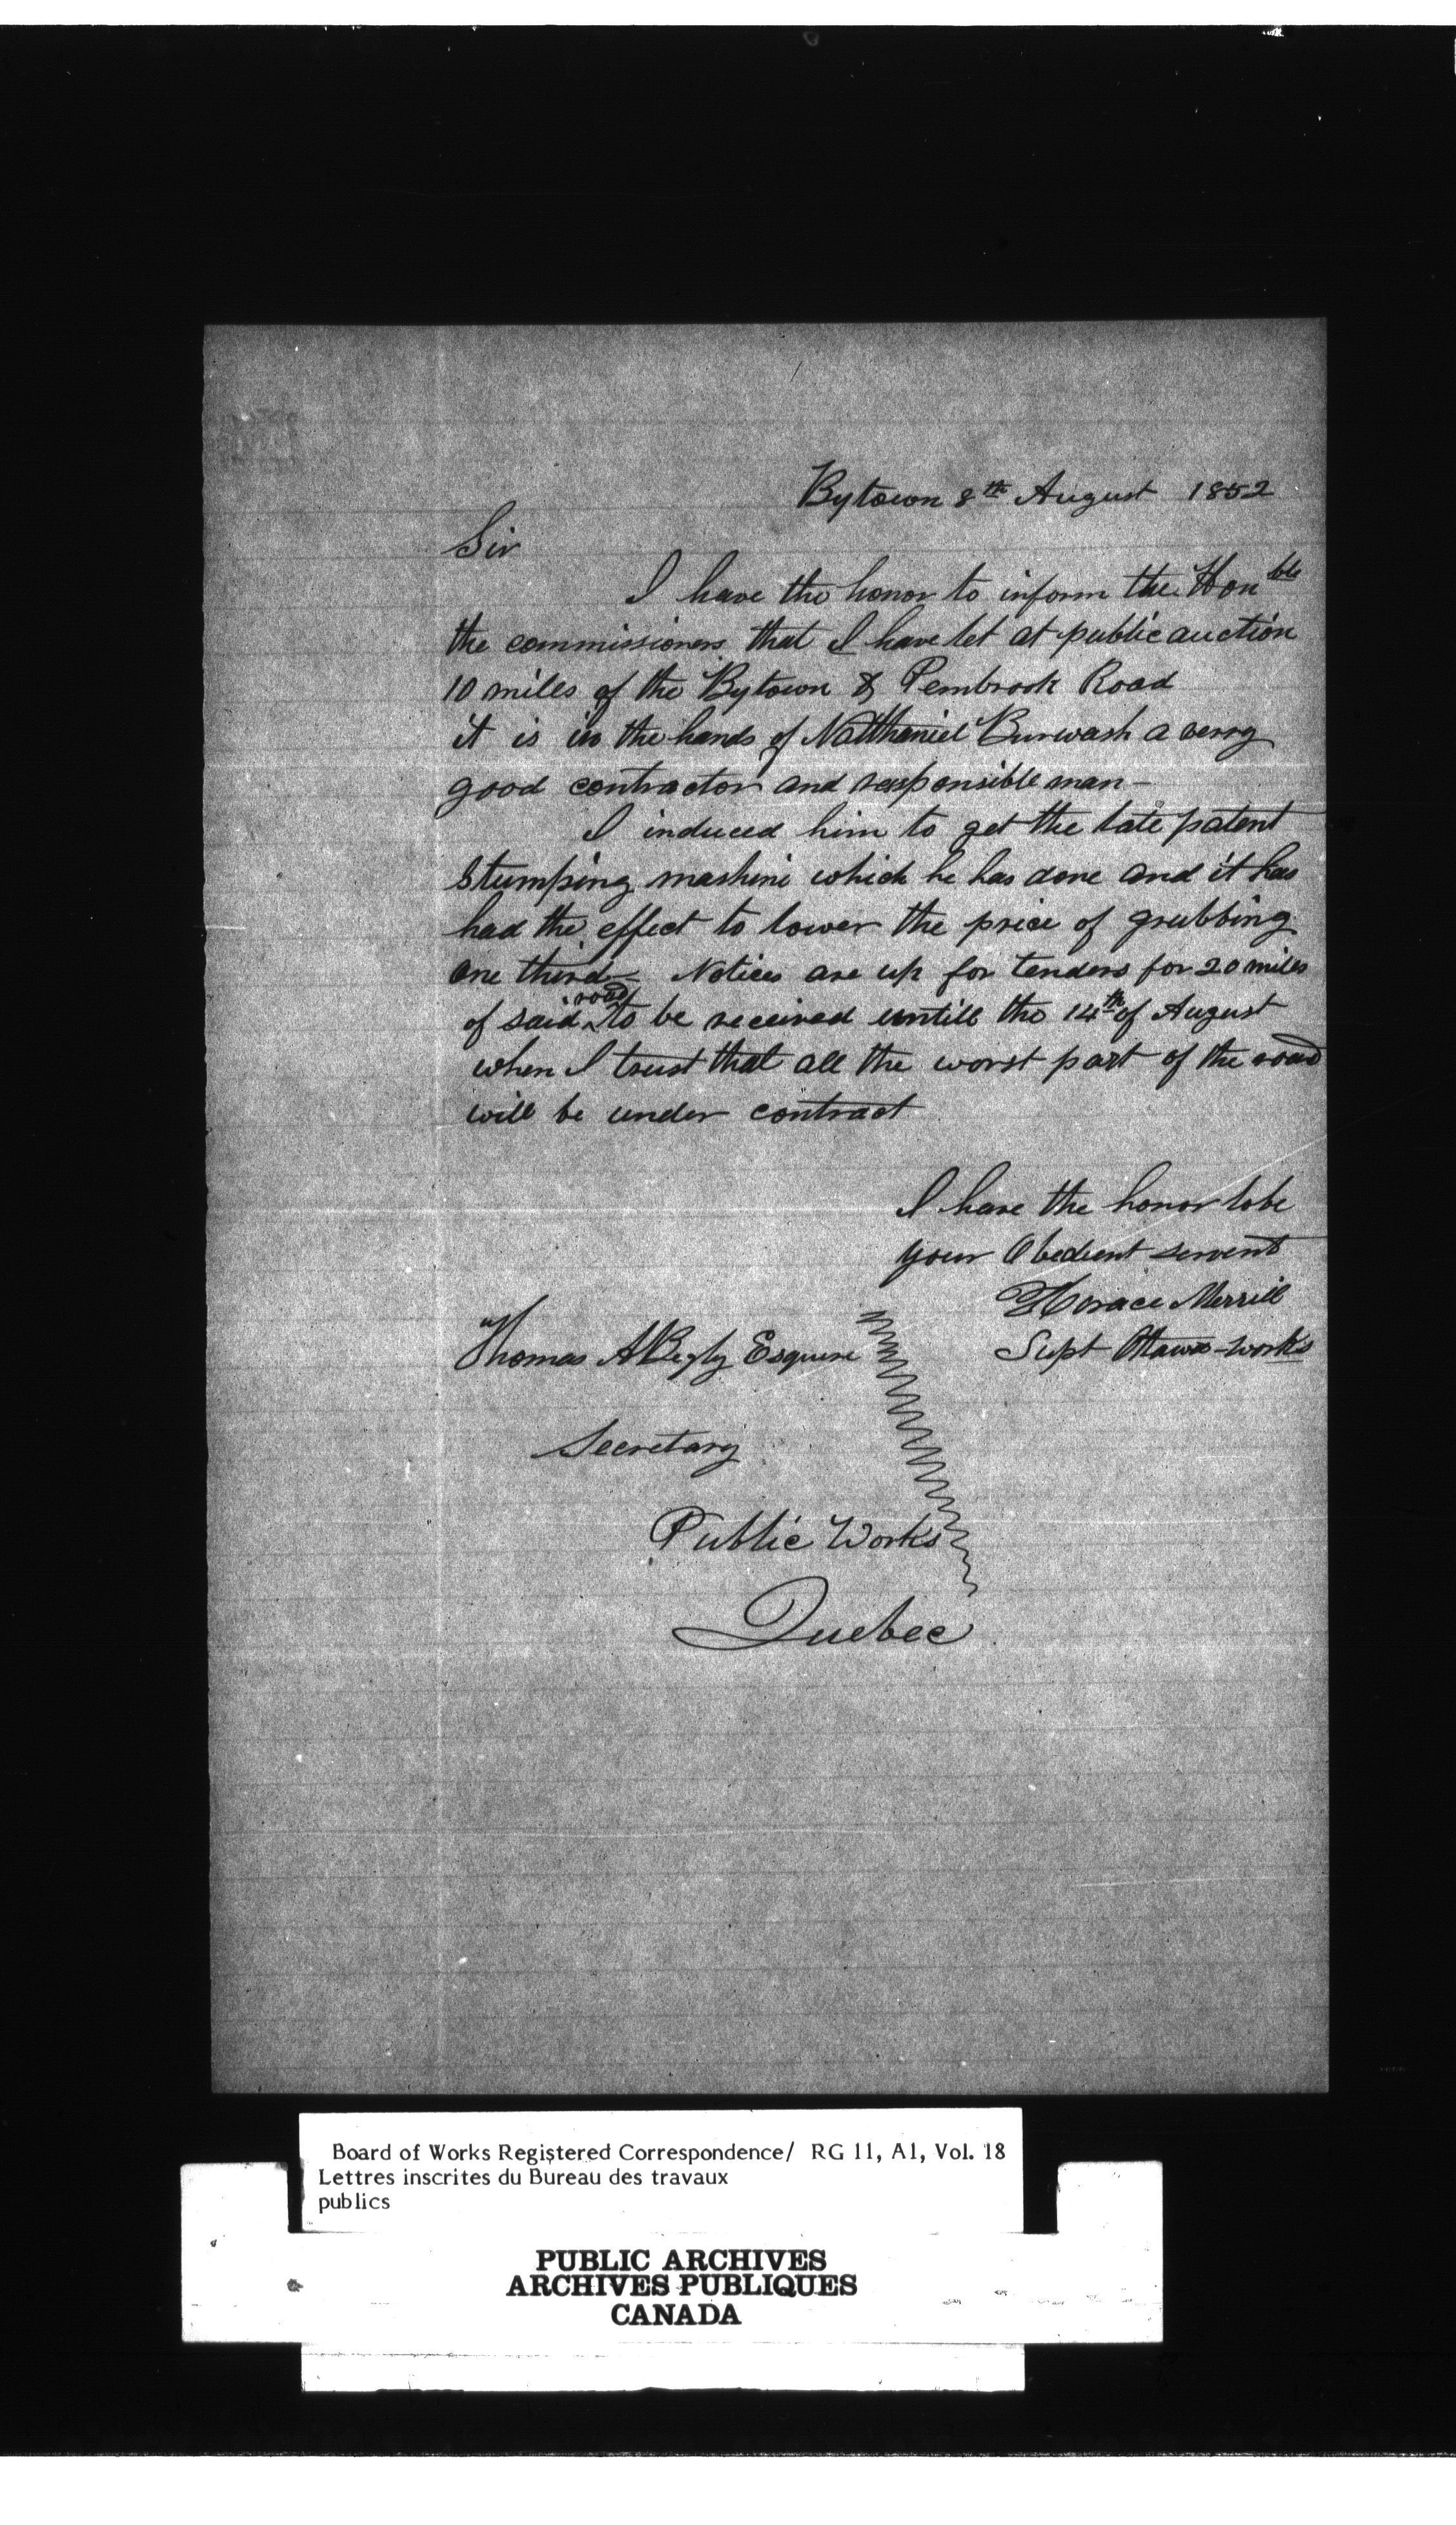 Bytown 8th August 1852
Sir
I have the honor to inform the Honble
the commissioners that I have let at public auction
10 miles of the Bytown & Pembrook Road
it is in the hands of Natthaniel Burwash a verry
good contractor and responsible man -
I induced him to get the late patent
Stumping mashine which he has done and it has
had the effect to lower the price of grubbing
one third - Notices are up for tenders for 20 miles
of said road to be received untill the 14th of August
when I trust that all the worst part of the road
will be under contract
I have the honor to be
your Obedient servent
Horace Merrill
Supt Ottawa works
Thomas A Begly Esquire
Secretary
Public Works
Quebec
Board of Works Registered Correspondence/ RG 11, A1, Vol. 18
Lettres inscrites du Bureau des travaux
publics
PUBLIC ARCHIVES
ARCHIVES PUBLIQUES
CANADA